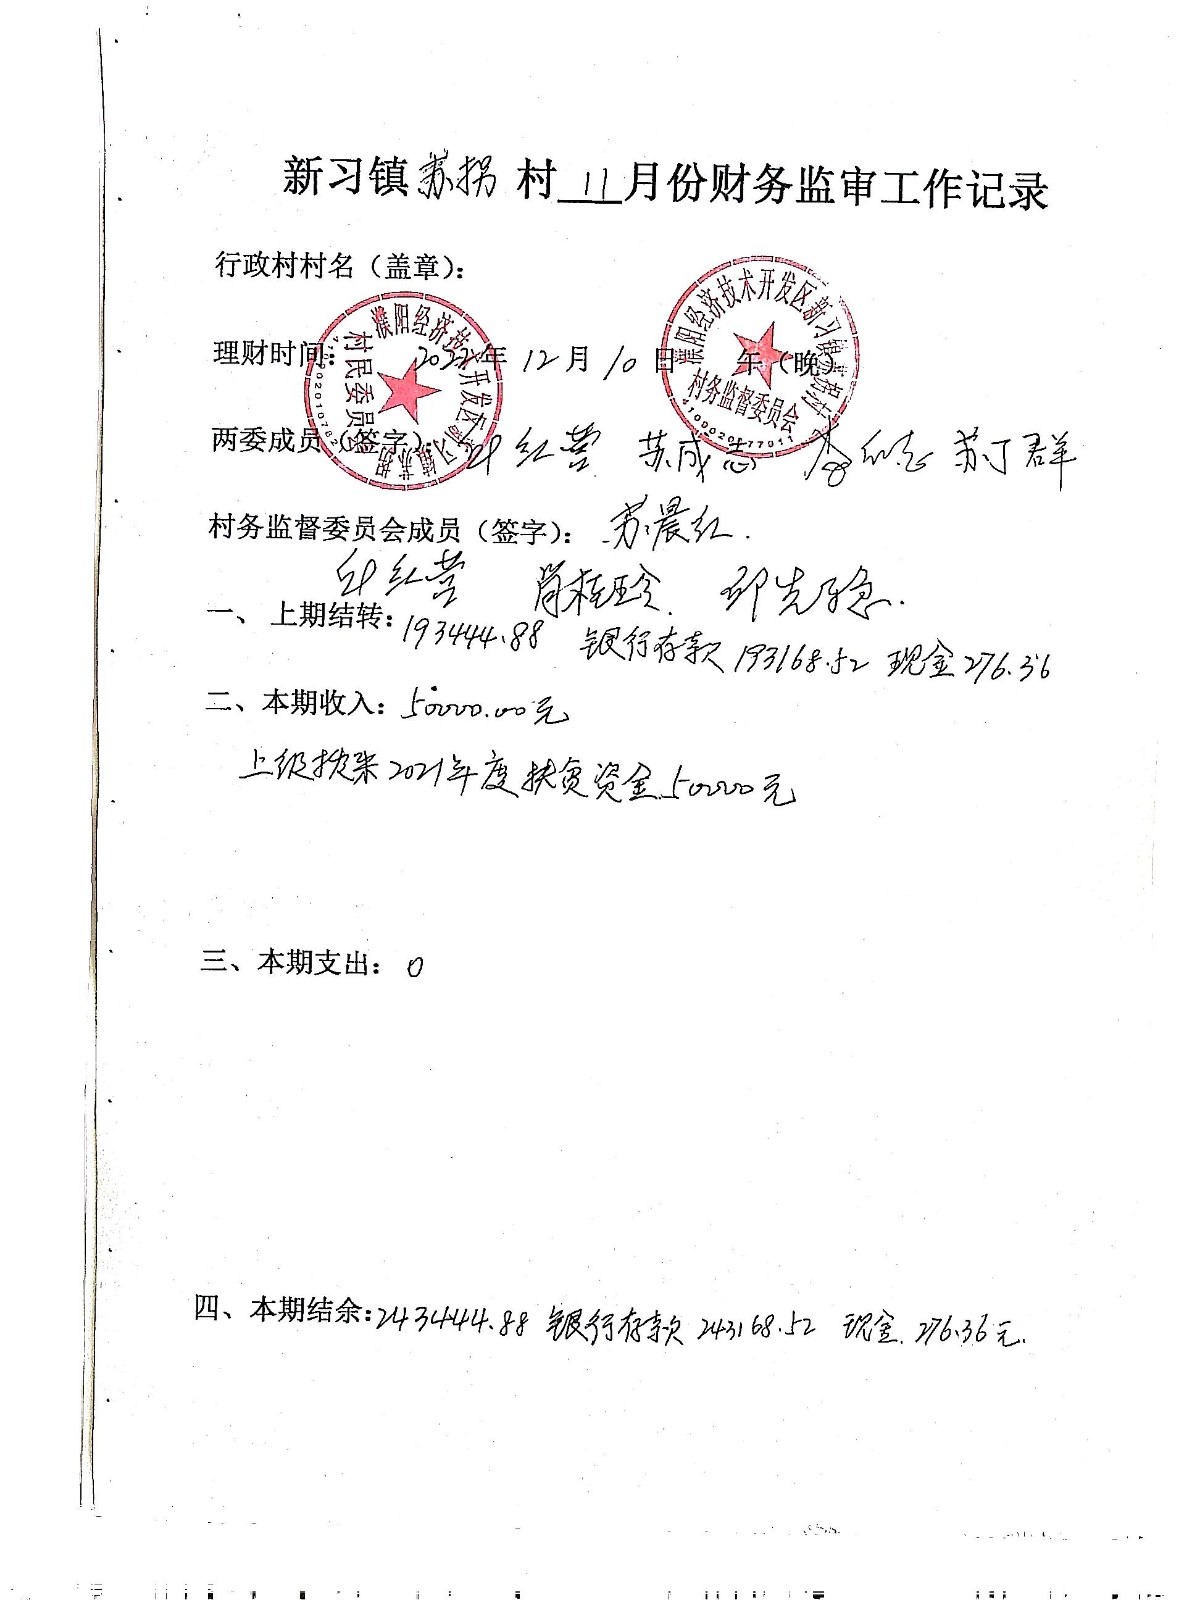 新习镇苏拐村 11 月份财务监审工作记录
行政村村名（盖章）：
理财时间： 2022年 12 月 10 日 午（晚）
濮阳经济技术开发区新习镇苏拐村
村民委员会
濮阳经济技术开发区新习镇苏拐村
村务监督委员会
两委成员（签字）： 叶红营 苏成志 苏丁群
村务监督委员会成员（签字）： 苏晨红.
叶红营 肖桂玲.
一、上期结转：193444.88 银行存款193168.52 现金276.36
二、本期收入：50000.00元
上级拨来2021年度扶贫资金50000元
三、本期支出：0
四、本期结余：243444.88 银行存款243168.52 现金.276.36元.